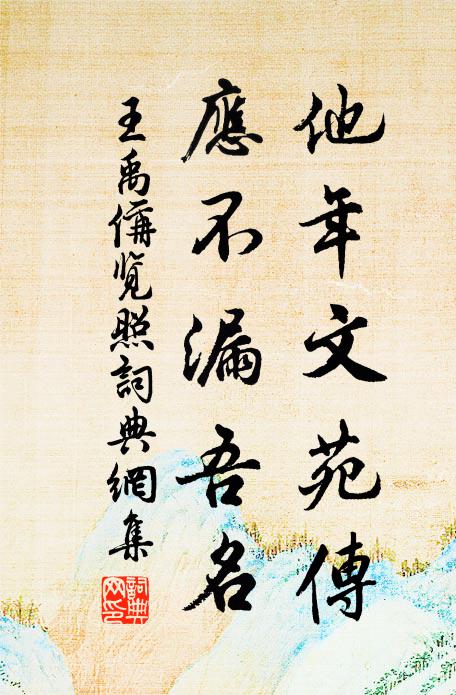 他年文苑傳
應不漏吾名
王禹偁覽照詞典網集
詞典網